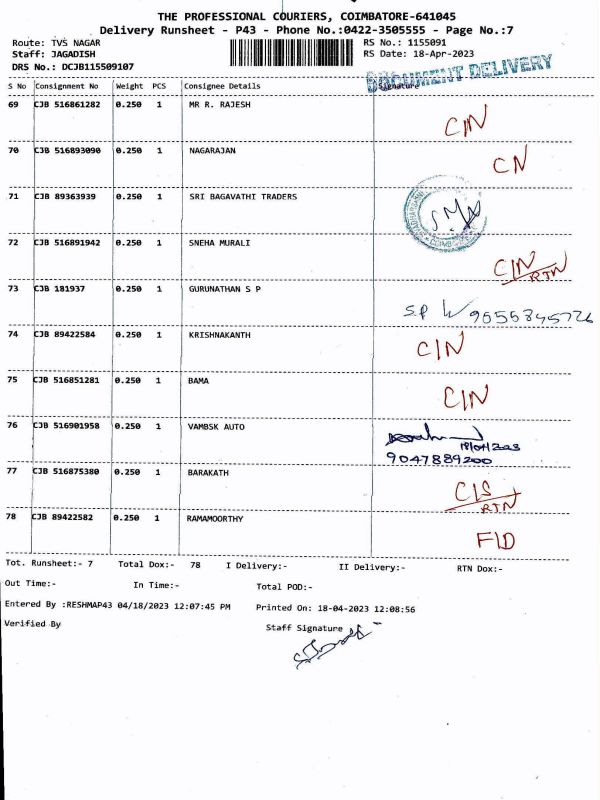 THE PROFESSIONAL COURIERS, COIMBATORE-641045
Delivery Runsheet - P43 - Phone No.:0422-3505555 - Page No.:7
Route: TVS NAGAR RS No.: 1155091
Staff: JAGADISH RS Date: 18-Apr-2023
DRS No.: DCJB115509107
DOCUMENT DELIVERY
S No Consignment No Weight PCS Consignee Details Signature
69 CJB 516861282 0.250 1 MR R. RAJESH
CIN
70 CJB 516893090 0.250 1 NAGARAJAN
CN
71 CJB 89363939 0.250 1 SRI BAGAVATHI TRADERS
72 CJB 516891942 0.250 1 SNEHA MURALI
CIN
RTN
73 CJB 181937 0.250 1 GURUNATHAN S P
S.P
74 CJB 89422584 0.250 1 KRISHNAKANTH
CIN
75 CJB 516851281 0.250 1 BAMA
CIN
76 CJB 516901958 0.250 1 VAMBSK AUTO
9047889200
77 CJB 516875380 0.250 1 BARAKATH
CIS
RTN
78 CJB 89422582 0.250 1 RAMAMOORTHY
FID
Tot. Runsheet:- 7 Total Dox:- 78 I Delivery:- II Delivery:- RTN Dox:-
Out Time:- In Time:- Total POD:-
Entered By :RESHMAP43 04/18/2023 12:07:45 PM Printed On: 18-04-2023 12:08:56
Verified By Staff Signature